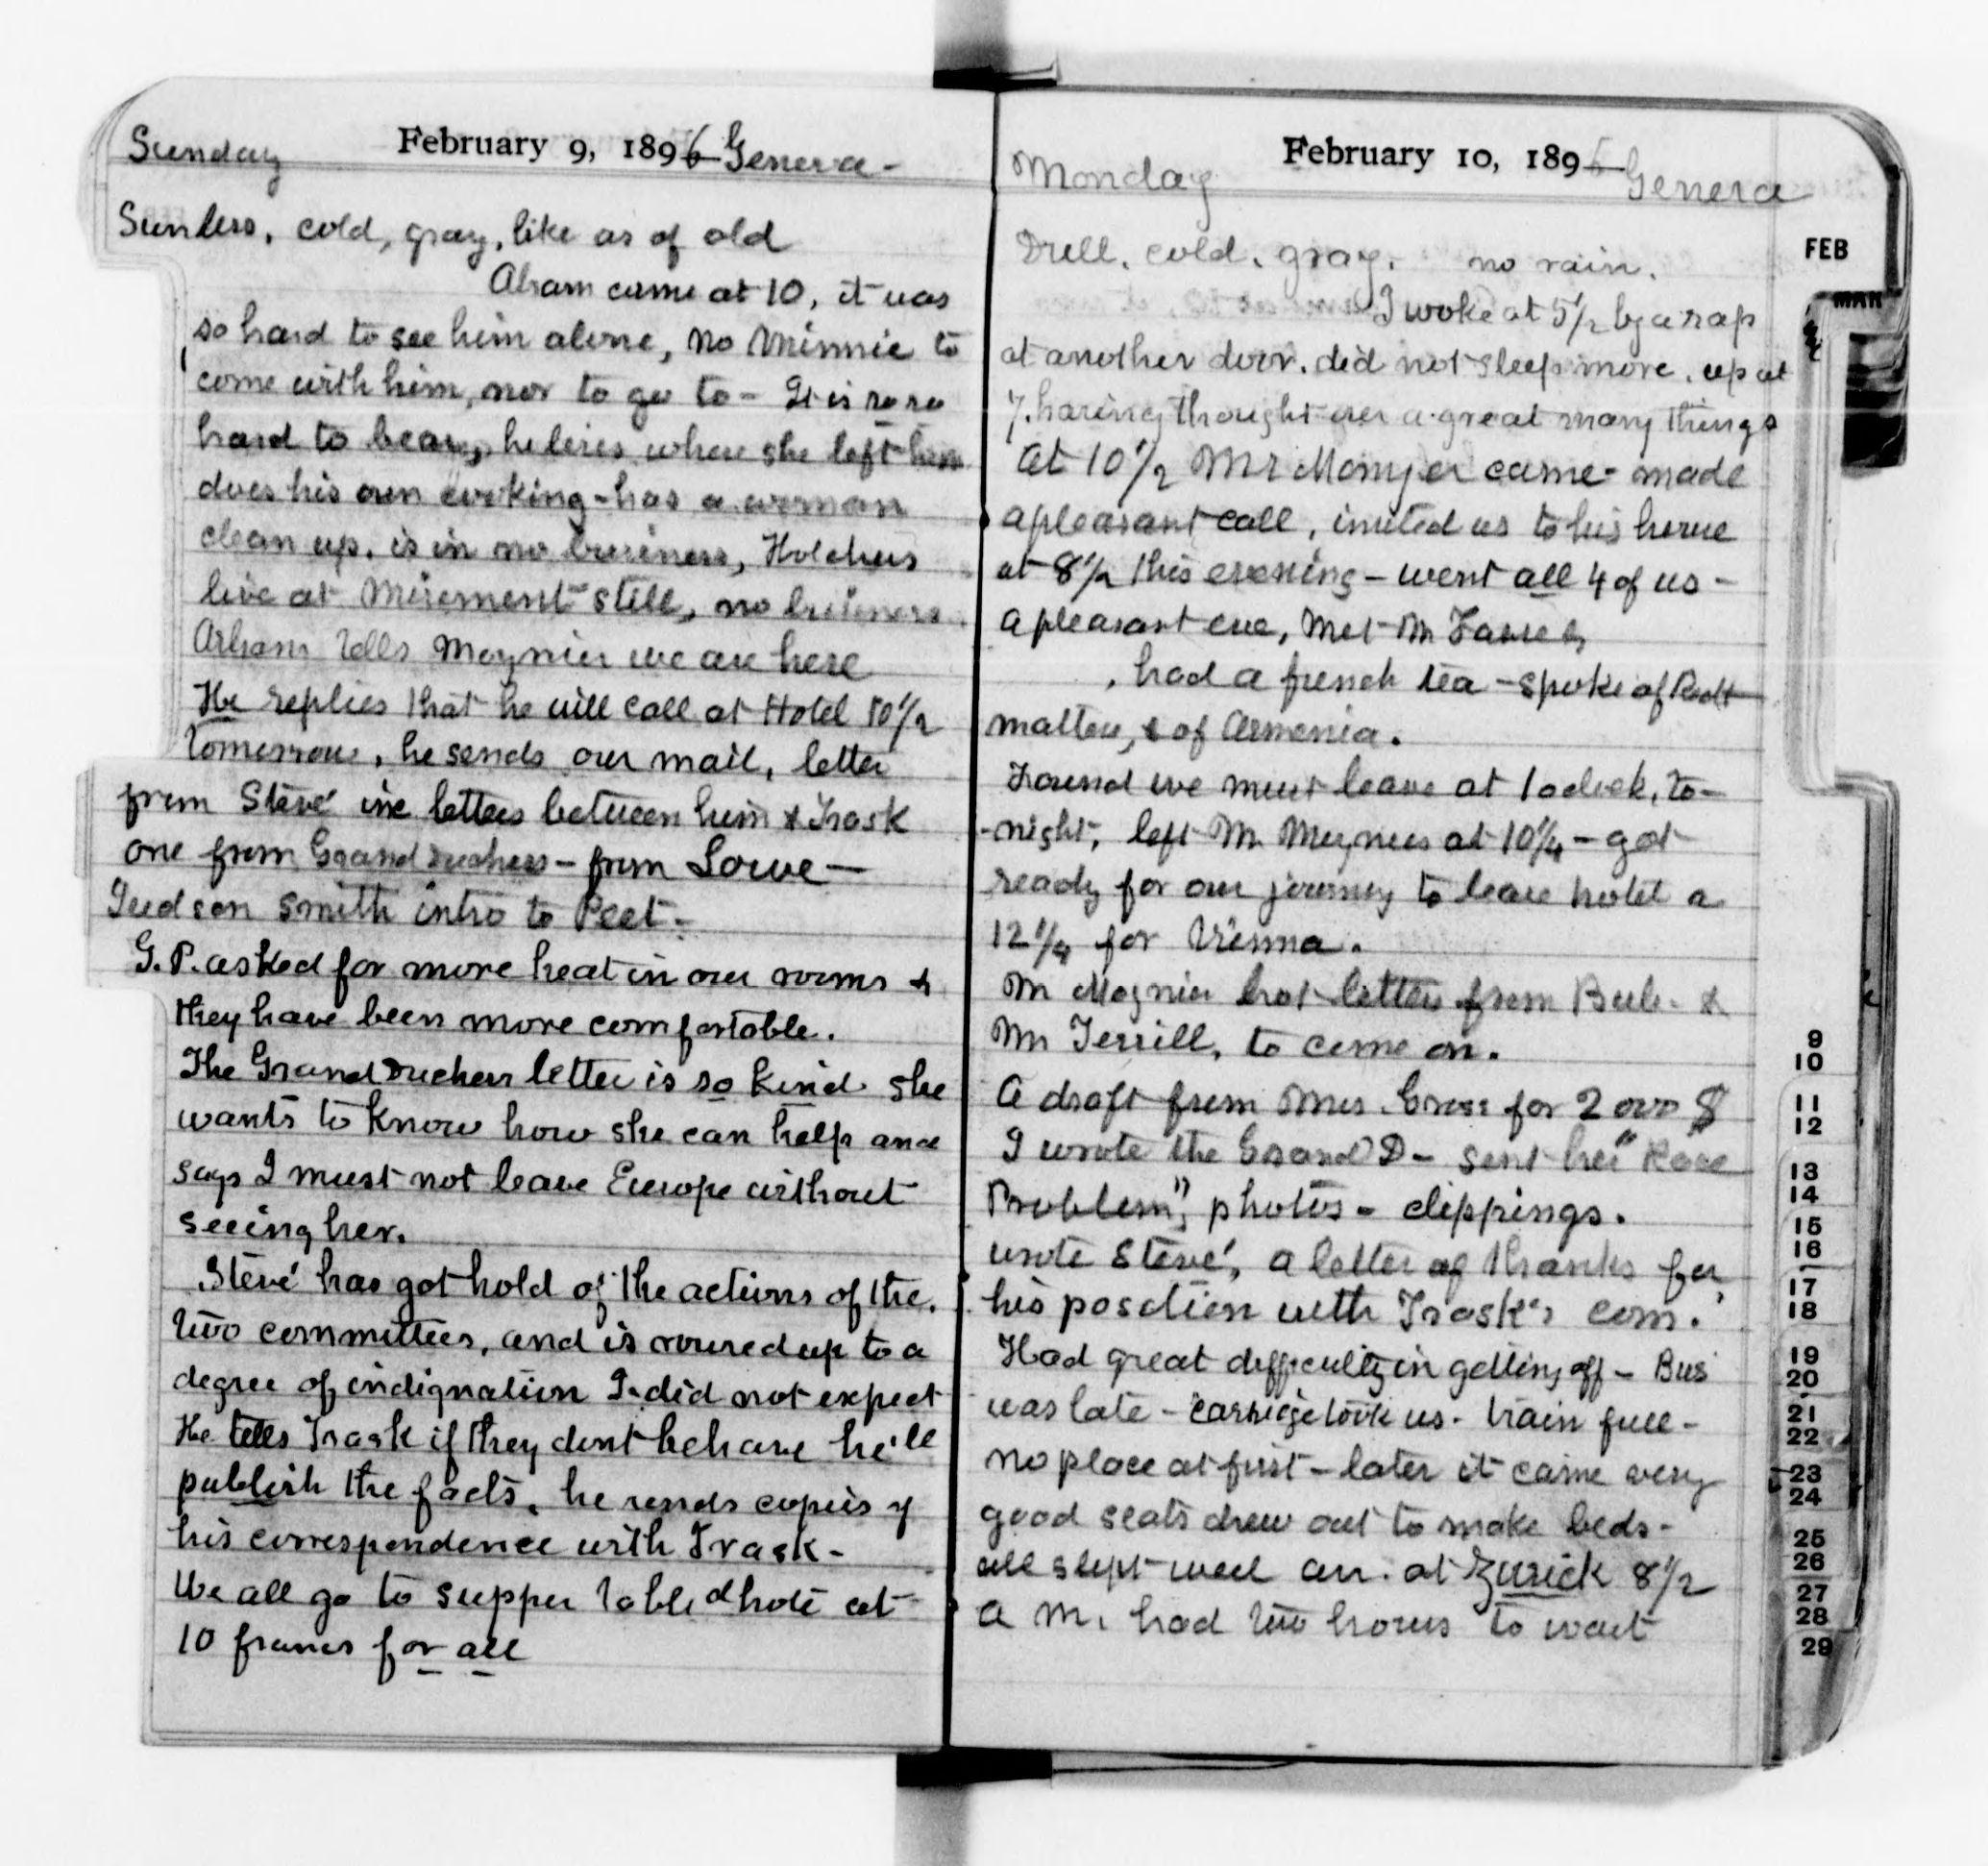 Sunday February 9, 1896 Geneva -
Sunless, cold, gray, like as of old
Abram came at 10, it was
so hard to see him alone, no Minnie to
come with him, nor to go to - It is so so
hard to bear, he lives where she left him
does his own cooking - has a woman
clean up. is in no business,
live at still, no business
Abram tells Moynier we are here
He replies that he will call at Hotel 10 1/2
tomorrow, he sends our mail, letter
from Steve' inc letters between him & Trask
one from Grand Duchess - from Lowe -
Judson Smith intro to Peet -
G. P. asked for more heat in our rooms &
they have been more comfortable.
The Grand Duchess letter is so kind she
wants to know how she can help and
says I must not leave Europe without
seeing her.
Steve' has got hold of the actions of the
two committees, and is roused up to a
degree of indignation I did not expect
He tells Trask if they dont behave he'll
publish the facts, he sends copies of
his correspondence with Trask -
We all go to supper table d hote at
10 francs for all
Monday February 10, 1896 Geneva
Dull, cold, gray, no rain.
I woke at 5 1/2 by a rap
at another door. did not sleep more, up at
7. having thought over a great many things
At 10 1/2 Mr came - made
a pleasant call, invited us to his house
at 8 1/2 this evening - went all 4 of us -
a pleasant eve, met M
, had a french tea - spoke of
matters, & of Armenia.
Found we must leave at 1 oclock, to-
-night, left M at 10 1/4 - got
ready for our journey to leave hotel a
12 1/4 for Vienna.
M Moynier has letters from Bub - &
Mr Terrill, to come on.
A draft from Mrs. for 2 000 $
I wrote the Grand D - sent her "Race
Problem", photos - clippings.
wrote Steve', a letter of thanks for
his position with Trask's com.
Had great difficulty in getting off - Bus
was late - carriage took us - train full -
no place at first - later it came very
good seats drew out to make beds -
all slept well arr. at Zurick 8 1/2
a m. had two hours to wait
FEB
MAR
9
10
11
12
13
14
15
16
17
18
19
20
21
22
23
24
25
26
27
28
29